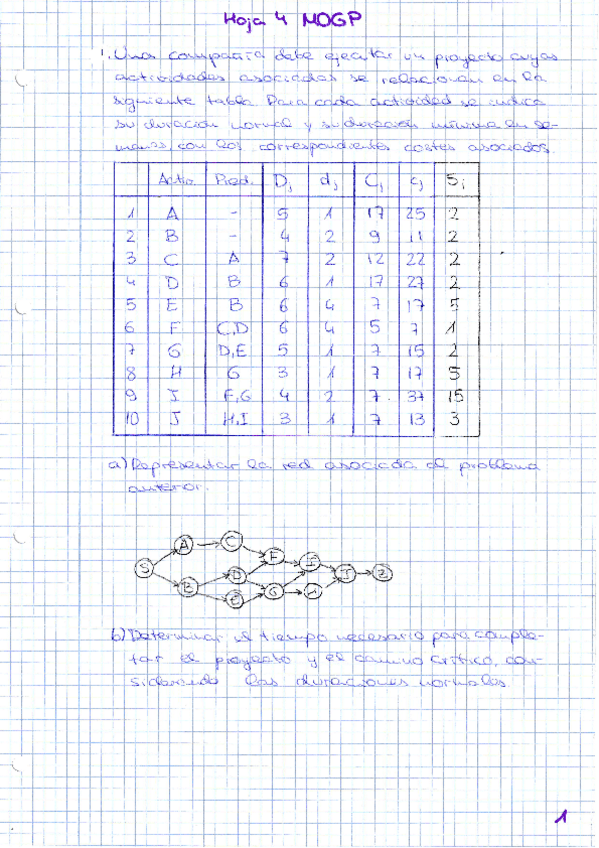 Hoja 4 MOGP
1. Una compañía debe ejecutar un proyecto cuyas
actividades asociadas se relacionan en la
siguiente tabla. Para cada actividad se indica
su duración normal y su duración mínima en se-
manas, con los correspondientes costes asociados.
Activ. Pred. Dj dj Cj cj Sj
1 A - 5 1 17 25 2
2 B - 4 2 9 11 2
3 C A 7 2 12 22 2
4 D B 6 1 17 27 2
5 E B 6 4 7 17 5
6 F C,D 6 4 5 7 1
7 G D,E 5 1 7 15 2
8 H G 3 1 7 17 5
9 I F,G 4 2 7 37 15
10 J H,I 3 1 7 13 3
a) Representar la red asociada al problema
anterior.
S A C B D E F G I H J Z
b) Determinar el tiempo necesario para comple-
tar el proyecto y el camino crítico, con-
siderando las duraciones normales.
1